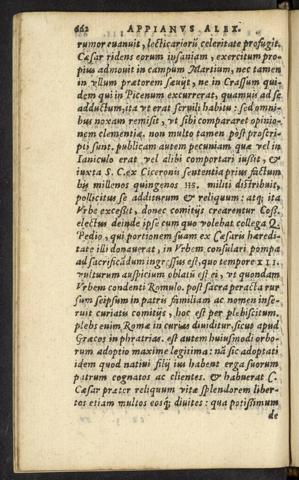 662 APPIANVS ALEX.
rumor euanuit, lecticariorũ celeritate profugit.
Cæsar ridens eorum insaniam, exercitum pro-
pius admouit in campum Martium, nec tamen
in vllum prætorem sæuijt, ne in Crassum qui-
dem qui in Picenum excurrerat, quamuis ad se
adductum, ita vt erat seruili habitu: sed omni-
bus noxam remisit, vt sibi compararet opinio-
nem clementiæ. non multo tamen pòst proscri-
pti sunt. publicam autem pecuniam quæ vel in
Ianiculo erat vel alibi comportari iussit, &
iuxta S. C. ex Ciceronis sententia prius factum
bis millenos quingenos HS. militi distribuit,
pollicitus se additurum & reliquum: atq; ita
Vrbe excessit, donec comitijs crearentur Coss.
electus deinde ipse cum quo volebat collega Q.
Pedio, qui portionem suam ex Cæsaris hæredi-
tate illi donauerat, in Vrbem consulari pompa
ad sacrificadum ingressus est, quo tempore XII.
vulturum auspicium oblatũ est ei, vt quondam
Vrbem condenti Romulo. post sacra peracta rur
sum seipsum in patris familiam ac nomen inse-
ruit curiatis comitijs, hoc est per plebiscitum.
plebs enim Romæ in curias diuiditur. sicut apud
Græcos in phratrias. est autem huiusmodi orbo-
rum adoptio maxime legitima: nã sic adoptati
idem quod natiui filij ius habent erga suorum
patrum cognatos ac clientes. & habuerat C.
Cæsar præter reliquum vitæ splendorem liber-
tos etiam multos eosq; diuites: qua potissimum
de